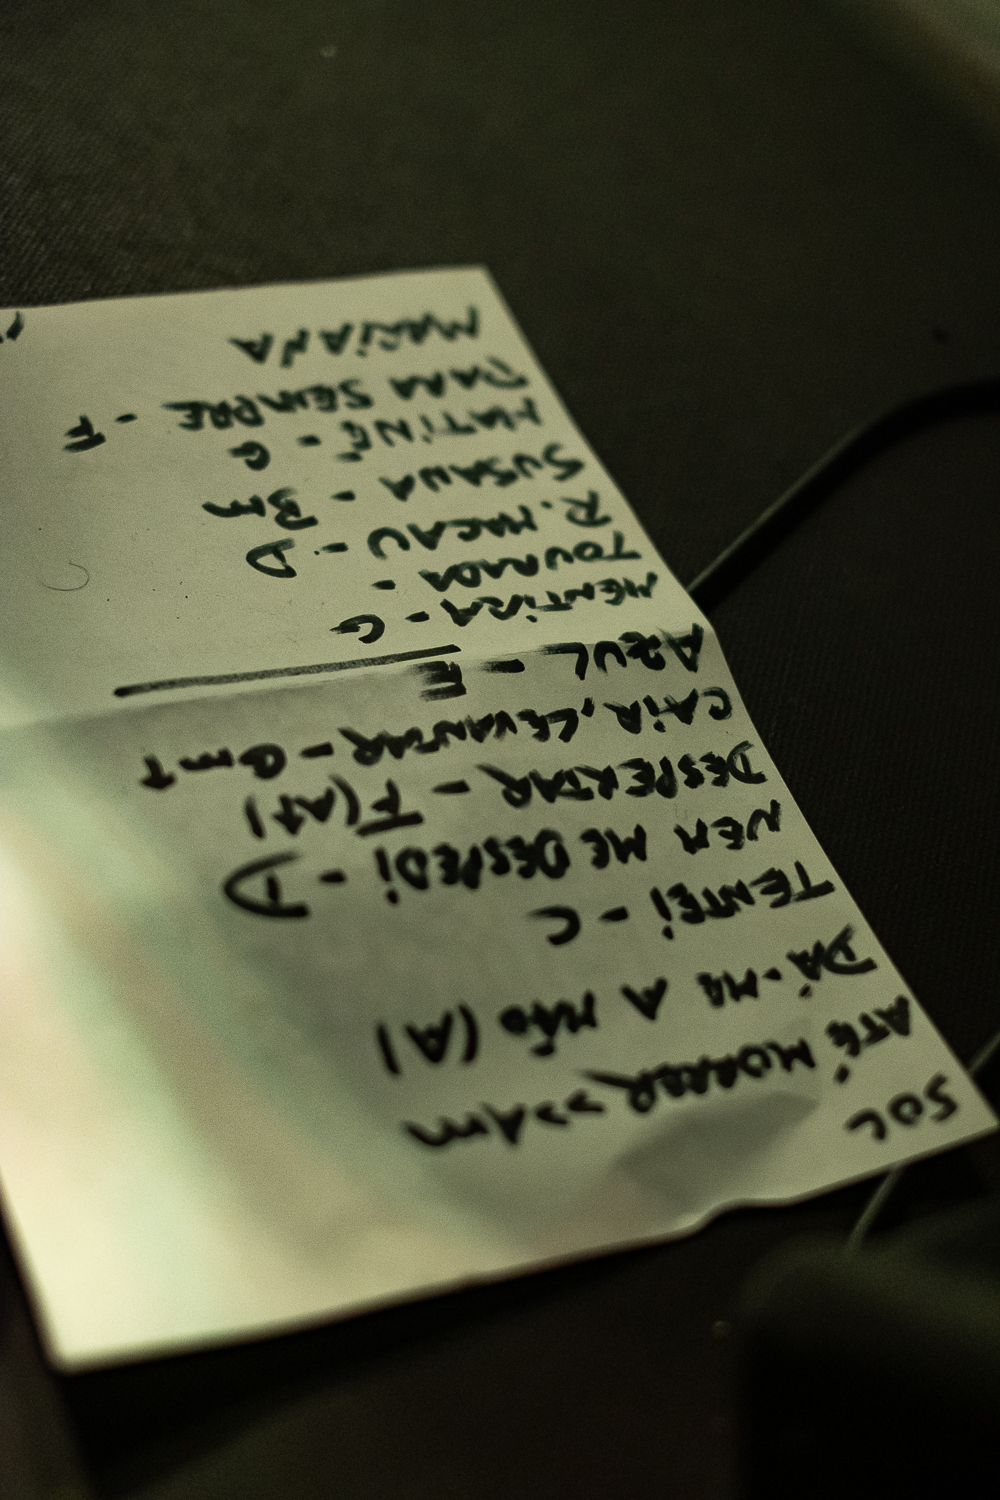 SOL
ATÉ MORRER >> Am
DÁ-ME A MÃO (A)
TENTEI - C
NEM ME DESPEDI - D
DESPERTAR - F
CAIR, LEVANTAR - Gm
AZUL - E
MENTIRA - G
TOURADA -
R. MACAU - D
SUSANA - Bm
MATINÉ - G
PARA SEMPRE - F
MARIANA